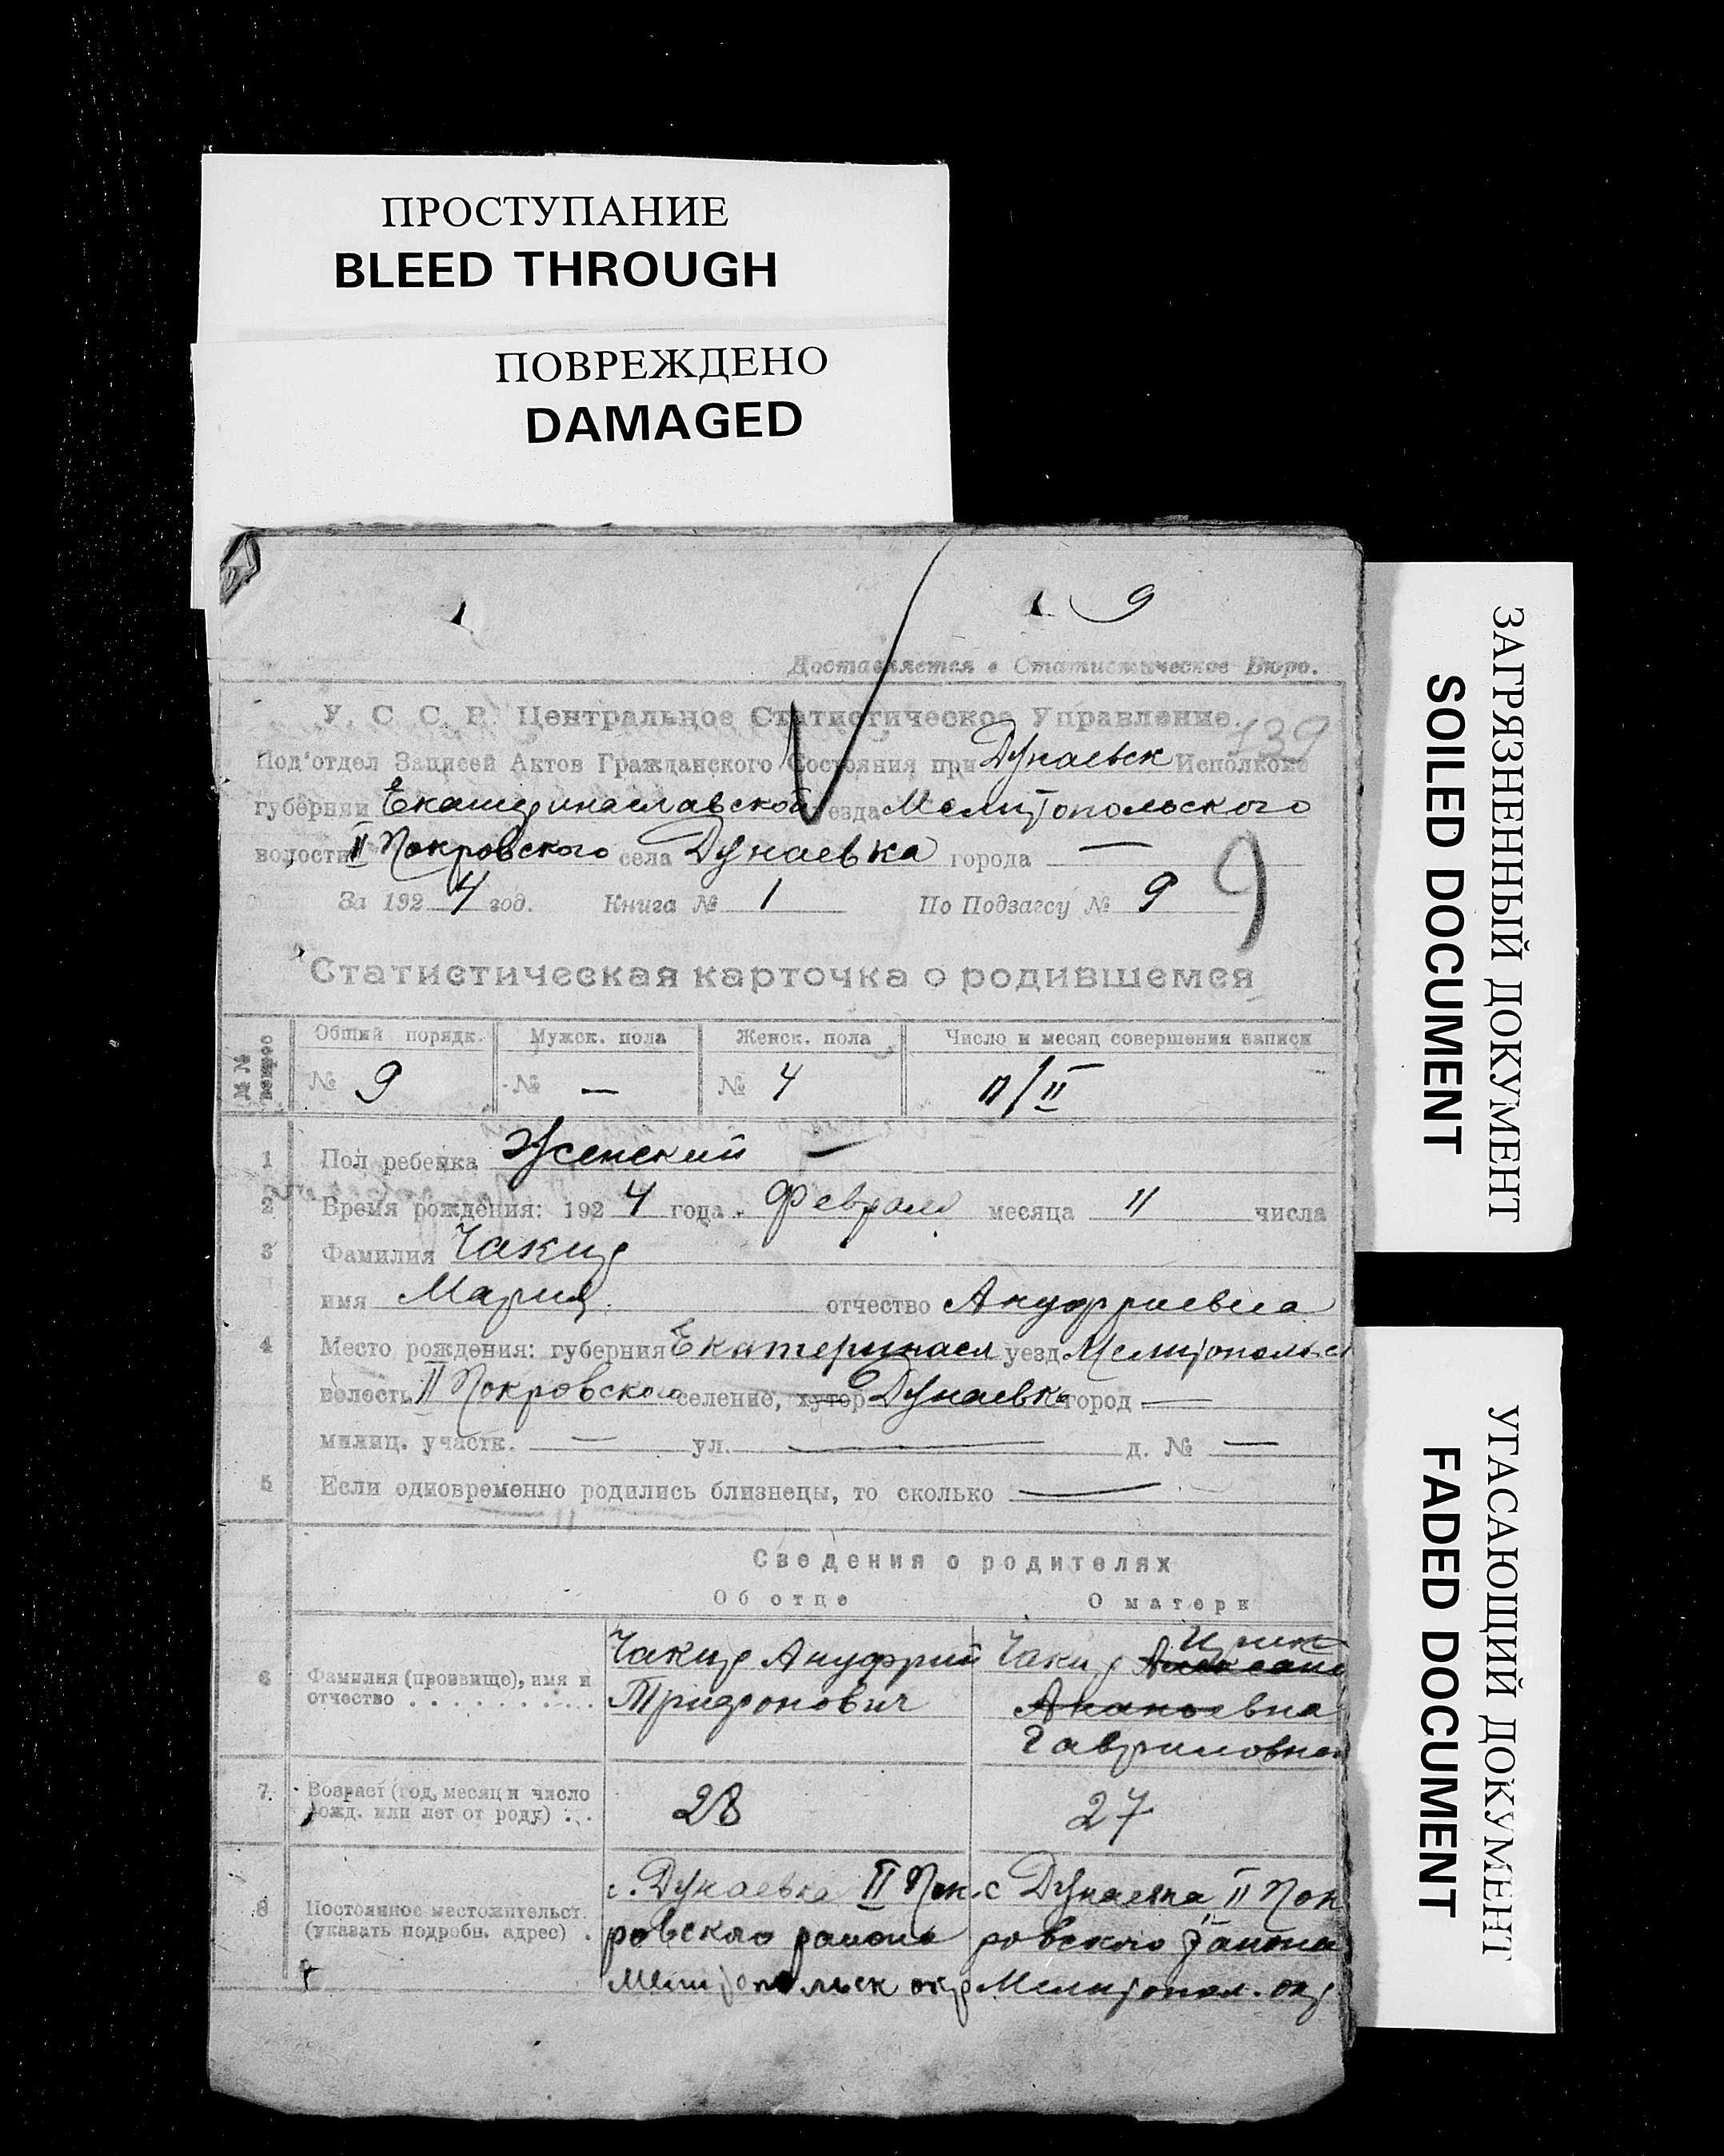 ПРОСТУПАНИЕ
BLEED THROUGH
ПОВРЕЖДЕНО
DAMAGED
ЗАГРЯЗНЕННЫЙ ДОКУМЕНТ
SOILED DOCUMENT
УГАСАЮЩИЙ ДОКУМЕНТ
FADED DOCUMENT
9
Доставляется в Статистическое Бюро.
У. С. С. Р. Центральное Статистическое Управление.
139
Под'отдел Записей Актов Гражданского Состояния при Дунаевск Исполкоме
губернии Екатеринаславской уезда Мелитопольского
волости II Покровского села Дунаевка города —
9
За 1924 год. Книга № 1 По Подзагсу № 9
Статистическая карточка о родившемся
№№ вопрос
Общий порядк. Мужск. пола Женск. пола Число и месяц совершения записи
№ 9 № — № 4 11/II
1 Пол ребенка Женский —
2 Время рождения: 1924 года. Февраля месяца 11 числа
3 Фамилия Чакир
имя Мария отчество Ануфриевна
4 Место рождения: губерния Екатеринасл уезд Мелитопольск
волость II Покровского селение, хутор Дунаевка город —
милиц. участк. — ул. — д. № —
5 Если одновременно родились близнецы, то сколько —
Сведения о родителях
Об отце О матери
6 Фамилия (прозвище), имя и отчество Чакир Ануфрий Трифонович
Чакир Ананьевна Гавриловна
7 Возраст (год, месяц и число рожд. или лет от роду) 28 27
8 Постоянное местожительст. (указать подробн. адрес)
с. Дунаевка II Пок-
ровского района
Мелитопольск окр
с Дунаевка II Пок
ровского района
Мелитопол. окр